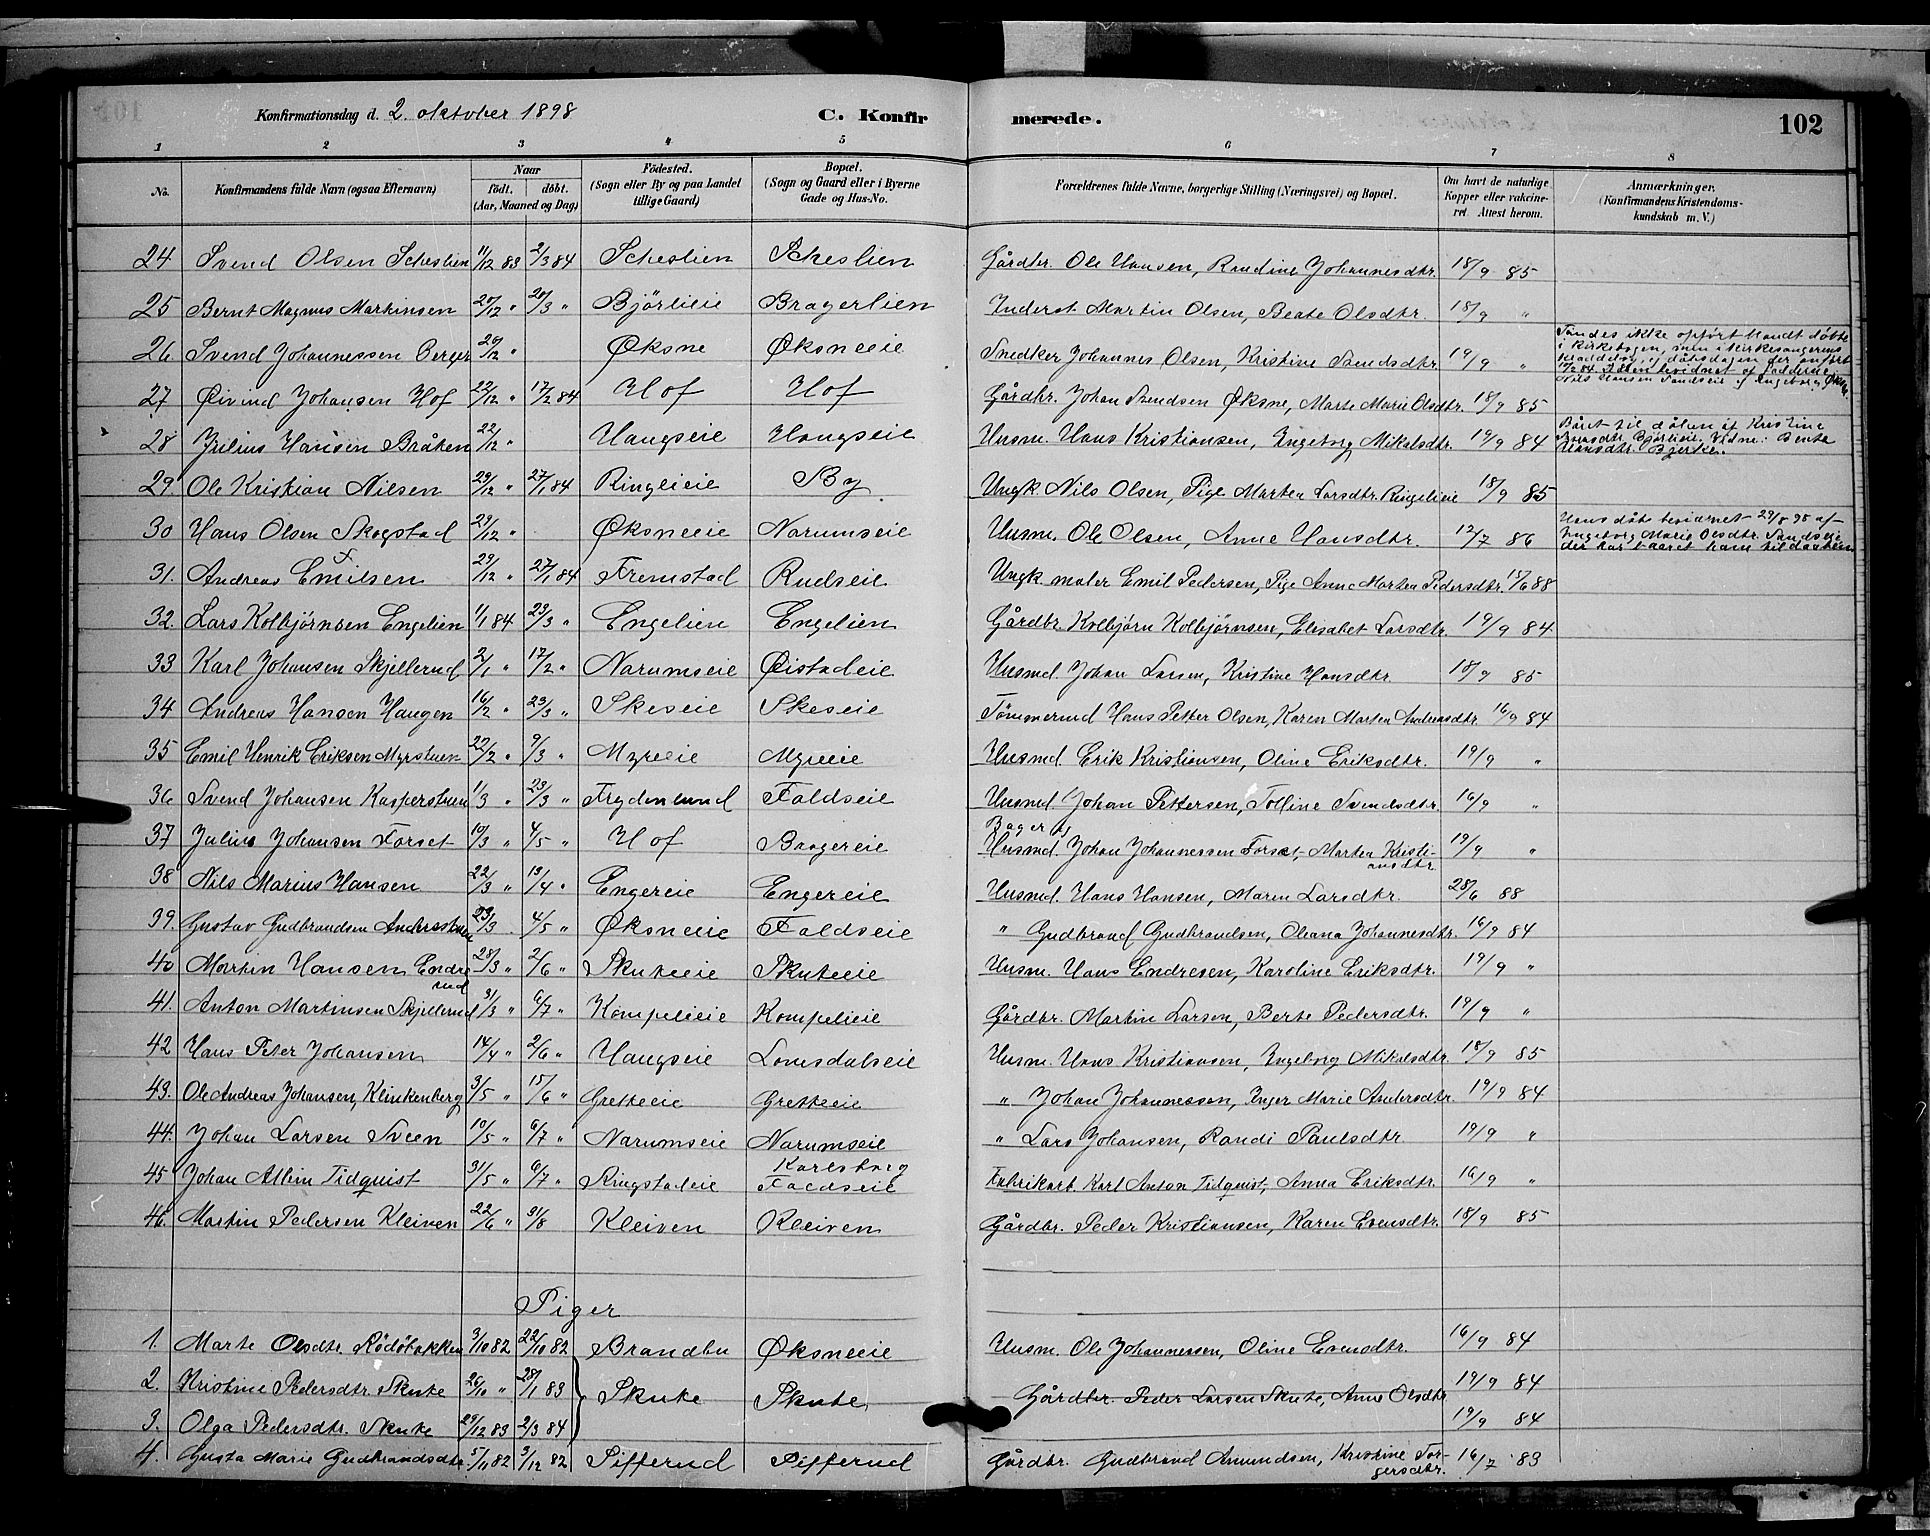 Konfirmationsdag d. 2. oktober 1898 C. Konfirmerede. 102
1 2 3 4 5 6 7 8
No. Konfirmandens fulde Navn (ogsaa Efternavn) Naar födt. döbt. (Aar, Maaned og Dag) Födested. (Sogn eller By og paa Landet tillige Gaard) Bopæl. (Sogn og Gaard eller i Byerne Gade og Hus-No. Forældrenes fulde Navne, borgerlige Stilling (Næringsvei) og Bopæl. Om havt de naturlige Kopper eller vakcineret. Attest herom. Anmærkninger. (Konfirmandens Kristendomskundskab m. V.)
24 Svend Olsen Scheslien 11/12 83 2/3 84 Scheslien Scheslien Gårdbr. Ole Hansen, Randine Johannesdtr. 18/9 85
25 Bernt Magnus Martinsen 20/12 " 20/3 " Bjørlieie Bragerlien Inderst Martin Olsen, Beate Olsdtr. 18/9 "
26 Svend Johannessen Berger 20/12 " Øksne Øksneeie Snedker Johannes Olsen, Kristine Svendsdtr. 19/9 " Fandes ikke opført blandt døbte i kirkebogen, men i kirkesangerens kladdebog, og dåbsdagen der anført 17/2 84. Dåben bevidnet af fadderne Nils Hansen Sandseie og Ingeborg Øksne
27 Øivind Johansen Hof 22/12 " 17/2 84 Hof Hof Gårdbr. Johan Svendsen Øksne, Marte Marie Olsdtr. 18/9 85
28 Julius Hansen Bråten 22/12 " Haugseie Haugseie Husm. Hans Kristiansen, Ingeborg Mikalsdtr. 19/9 84 Båret til dåben af Kristine Bjørlieie. Vidne: Bente Hansdtr. Bjerke.
29. Ole Kristian Nilsen 23/12 " 27/1 84 Ringlieie By Ungk. Nils Olsen, Pige Marthea Larsdtr. Ringelieie 18/9 85
30 Hans Olsen Skogstad 23/12 " Øksneeie Narumseie Husm. Ole Olsen, Anne Hansdtr. 12/7 86 Hans dåb bevidnet 29/8 98 af Ingeborg Marie Olsdtr. Sandseie der har baaret ham til daaben
31. Andreas Emilsen 29/12 " 27/1 84 Fremstad Rudseie Ungk. maler Emil Pedersen, Pige Anne Marthea Pedersdtr. 15/6 88
32. Lars Kolbjørnsen Engelien 1/1 84 23/3 " Engelien Engelien Gårdbr. Kolbjørn Kolbjørnsen, Elisabet Larsdtr. 19/9 84
33 Karl Johansen Skjellerud 2/1 " 17/2 " Narumseie Øistadeie Husmd. Johan Larsen, Kristine Hansdtr. 18/9 85
34 Andreas Hansen Haugen 16/2 " 23/3 " Skeseie Skeseie Tømmermd Hans Petter Olsen, Karen Marthea Andreasdtr. 16/9 84
35 Emil Henrik Eriksen Myrstuen 27/2 " 9/3 " Myreeie Myreeie Husmd. Erik Kristiansen, Oline Eriksdtr. 19/9 "
36 Svend Johansen Kasperstuen 1/3 " 23/3 " Frydenlund Faldseie Husmd. Johan Pettersen, Tolline Svendsdtr. 16/9 "
37 Julius Johansen Forset 10/3 " 4/5 " Hof Bragereie Bager og Husmd. Johan Johannessen Forset, Marthea Kristiansdtr. 19/9 "
38 Nils Marius Hansen 22/3 " 13/4 " Engereie Engereie Husmd. Hans Hansen, Maren Larsdtr. 28/6 88
39. Gustav Gudbrandsen Andersstuen 23/3 4/5 " Øksneeie Faldseie " Gudbrand Gudbrandsen, Oliana Johannesdtr. 16/9 84
40 Martin Hansen Endrerud 28/3 " 2/6 " Skuteeie Skuteeie Husm. Hans Endresen, Karoline Eriksdtr. 19/9 "
41. Anton Martinsen Skjellerud 31/3 " 6/7 " Kompelieie Kompelieie Gårdbr. Martin Larsen, Berte Pedersdtr. 19/9 "
42 Hans Peter Johansen 14/4 " 2/6 " Haugseie Lomsdalseie Husm. Hans Kristiansen, Ingeborg Mikalsdtr. 18/9 85
43. Ole Andreas Johansen, Klinkenberg 3/5 " 15/6 " Gretteeie Gretteeie " Johan Johannessen, Inger Marie Andersdtr. 19/9 84
44. Johan Larsen Sveen 10/5 " 6/7 " Narumseie Narumseie " Lars Johansen, Randi Paulsdtr. 19/9 "
45 Johan Albin Tidquist 31/5 " 6/7 " Ringstadeie Karlsborg Faldseie Fabrikarb. Karl Anton Tidquist, Anna Eriksdtr. 16/9 "
46. Martin Pedersen Kleiven 22/6 " 31/8 Kleiven Kleiven Gårdbr. Peder Kristiansen, Karen Evensdtr. 18/9 85
Piger
1. Marte Olsdtr. Rödöbakken 3/10 82 22/10 82 Brandbu Øksneeie Husm. Ole Johannessen, Oline Evensdtr. 16/9 84
2. Kristine Pedersdtr. Skute 26/10 " 28/1 83 Skute Skute Gårdbr. Peder Larsen Skute, Anne Olsdtr. 19/9 84
3. Olga Pedersdtr. Skute 29/12 83 2/3 84 19/9 84
4. Gusta Marie Gudbrandsdtr. 5/11 82 3/12 82 Sifferud Sifferud Gårdbr. Gudbrand Amundsen, Kristine Torgersdtr. 16/7 83